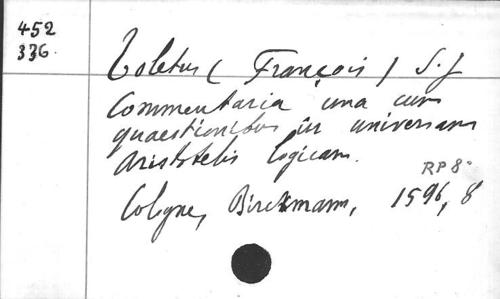 452
336.
Toletus (François) S.J
Commentaria una cum
quaestionibus in universam
Aristotelis logicam.
RP 8°
Cologne, Birckmann, 1596, 8